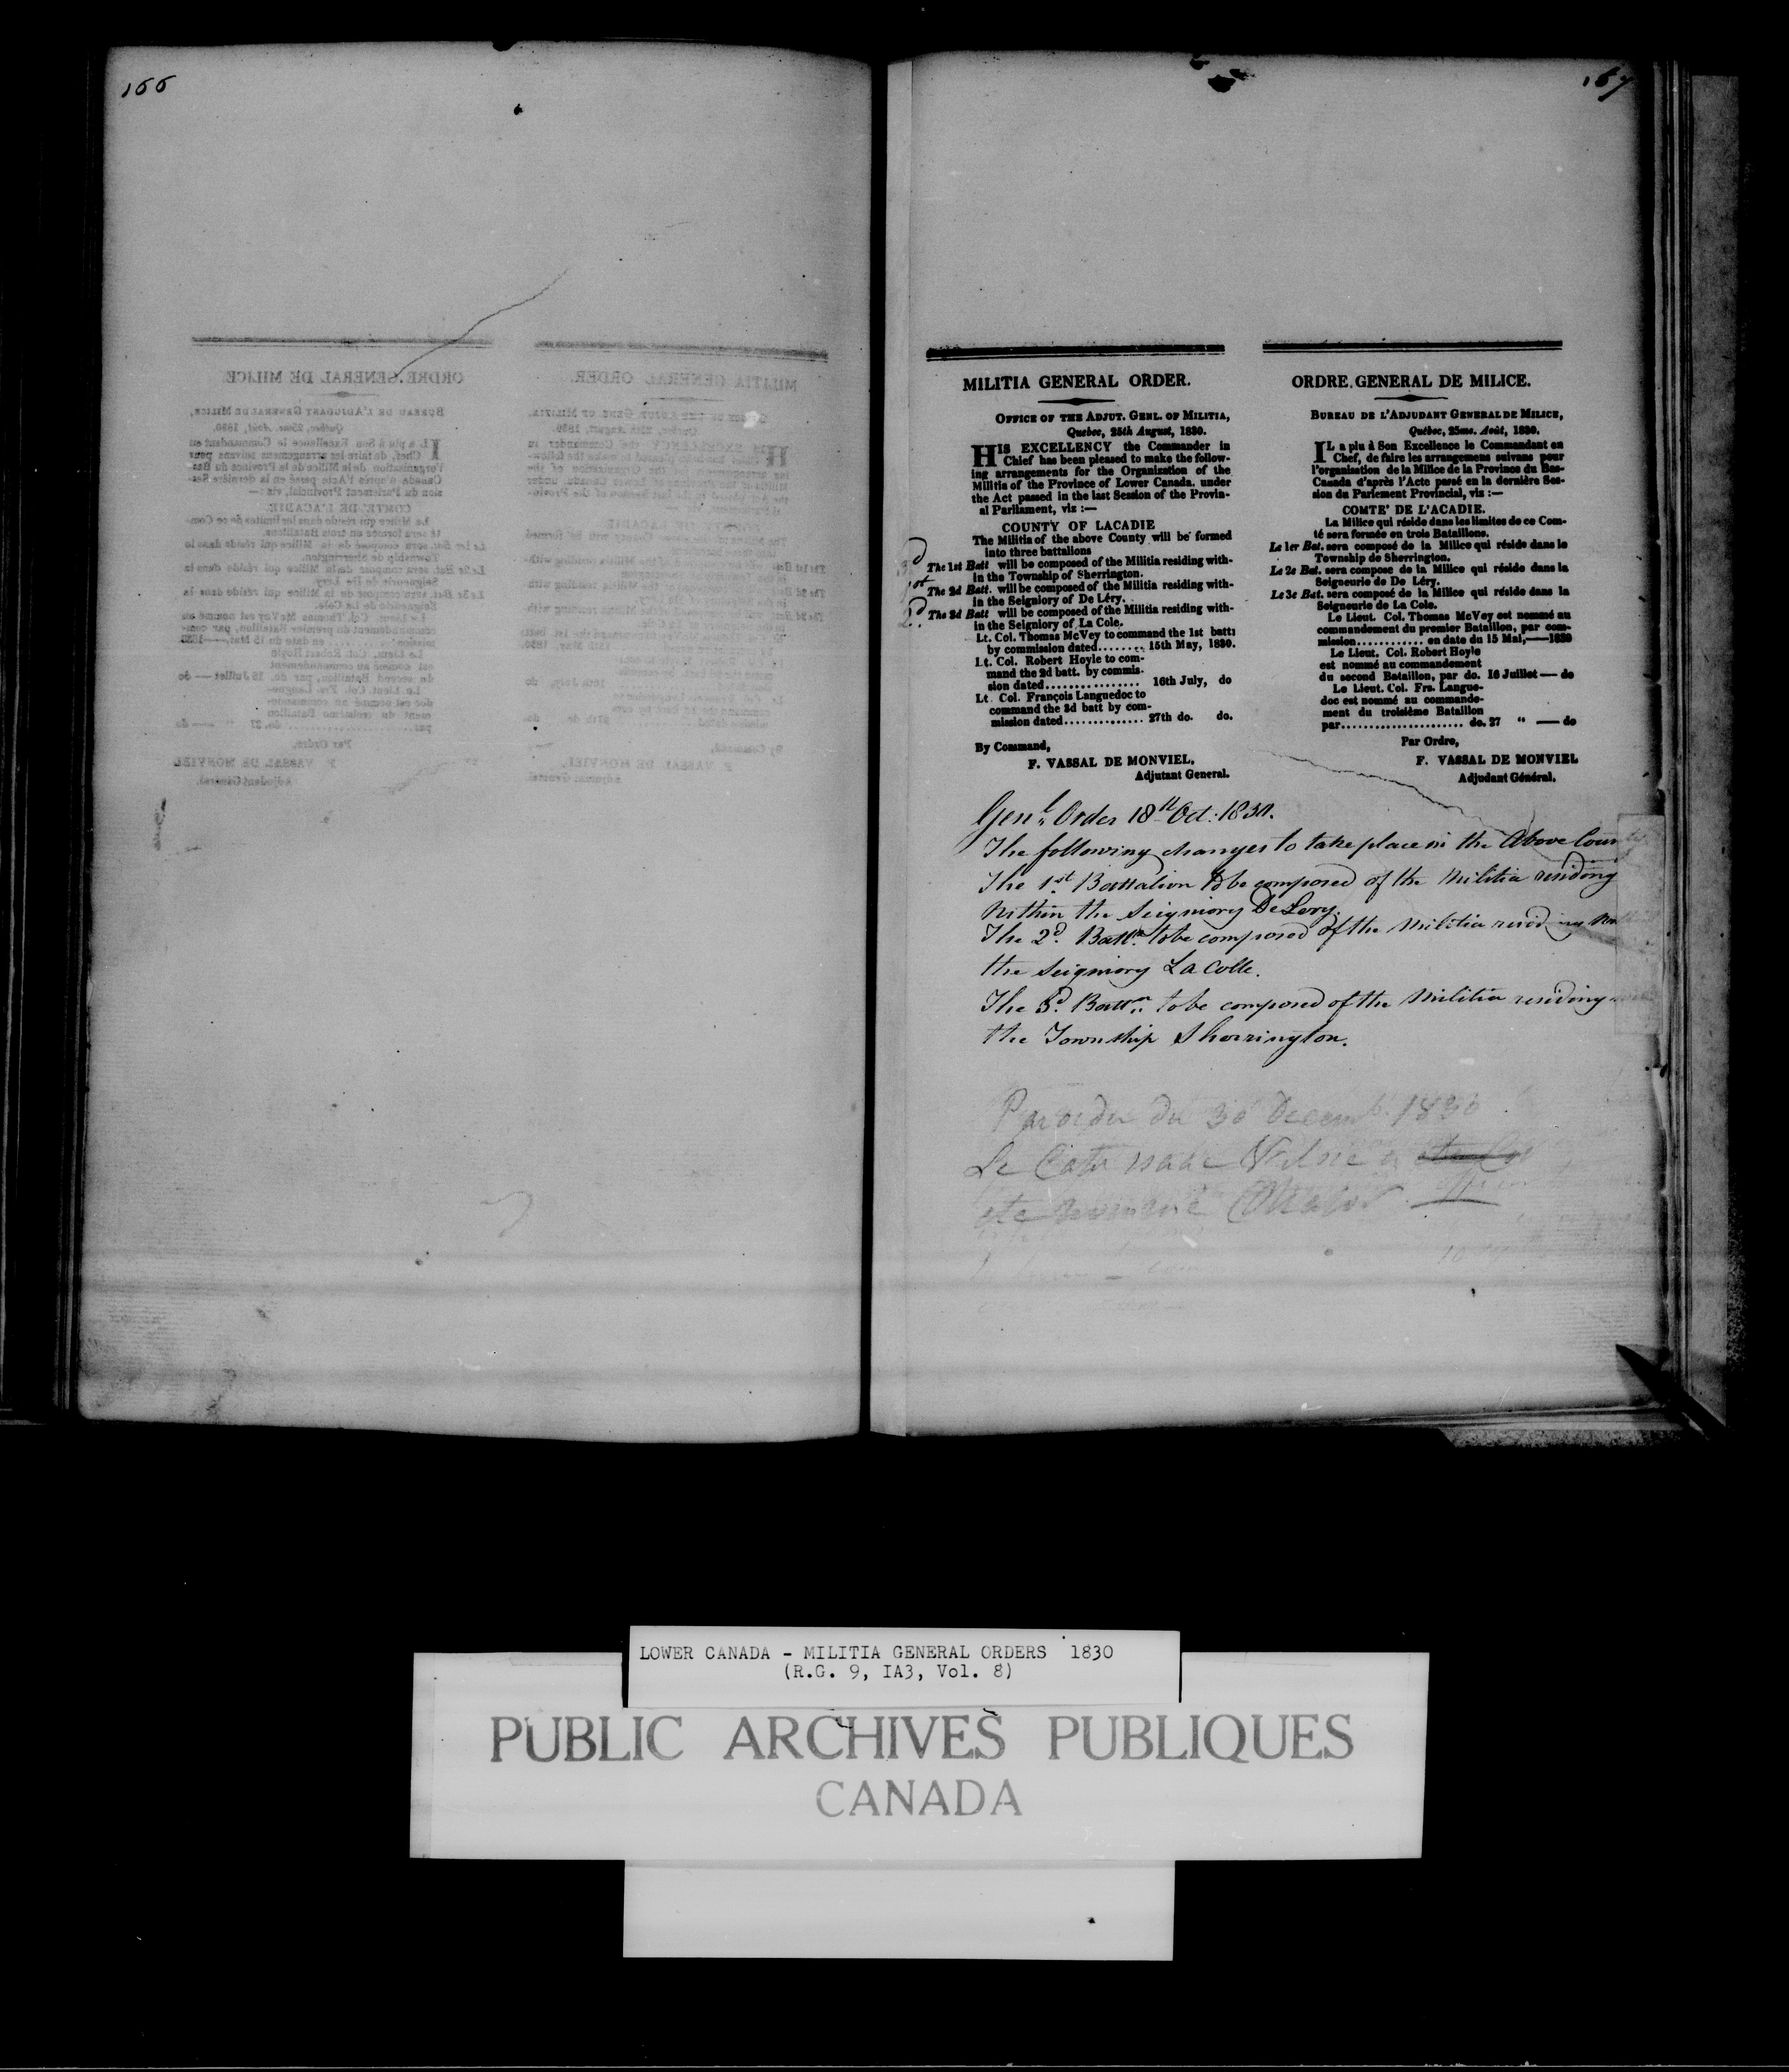 166
167
MILITIA GENERAL ORDER.
OFFICE OF THE ADJUT. GENL. OF MILITIA,
Quebec, 25th August, 1830.
HIS EXCELLENCY the Commander in
Chief has been pleased to make the follow-
ing arrangements for the Organization of the
Militia of the Province of Lower Canada, under
the Act passed in the last Session of the Provin-
al Parliament, viz :—
COUNTY OF LACADIE
The Militia of the above County will be formed
into three battalions
3d The 1st Batt will be composed of the Militia residing with-
in the Township of Sherrington.
1st The 2d Batt. will be composed of the Militia residing with-
in the Seigniory of De Léry.
2d. The 3d Batt will be composed of the Militia residing with-
in the Seigniory of La Cole.
Lt. Col. Thomas McVey to command the 1st batt:
by commission dated........ 15th May, 1830.
Lt. Col. Robert Hoyle to com-
mand the 2d batt. by commis-
sion dated................ 16th July, do
Lt. Col. François Languedoc to
command the 3d batt by com-
mission dated.............. 27th do. do.
By Command,
F. VASSAL DE MONVIEL,
Adjutant General.
ORDRE GENERAL DE MILICE.
BUREAU DE L'ADJUDANT GENERAL DE MILICE,
Québec, 25me. Août, 1830.
IL a plu à Son Excellence le Commandant en
Chef, de faire les arrangemens suivans pour
l'organisation de la Milice de la Province du Bas-
Canada d'après l'Acte passé en la dernière Ses-
sion du Parlement Provincial, viz :—
COMTE' DE L'ACADIE.
La Milice qui réside dans les limites de ce Com-
té sera formée en trois Bataillons.
Le 1er Bat. sera composé de la Milice qui réside dans le
Township de Sherrington.
Le 2e Bat. sera compose de la Milice qui réside dans la
Seigneurie de De Léry.
Le 3e Bat. sera composé de la Milice qui réside dans la
Seigneurie de La Cole.
Le Lieut. Col. Thomas McVey est nommé au
commandement du premier Bataillon, par com-
mission............ en date du 15 Mai,——1830
Le Lieut. Col. Robert Hoyle
est nommé au commandement
du second Bataillon, par do. 16 Juillet — do
Le Lieut. Col. Frs. Langue-
doc est nommé au commande-
ment du troisième Bataillon
par...................... do. 27 “ — do
Par Ordre,
F. VASSAL DE MONVIEL
Adjudant Général.
Genl. Order 18th Oct. 1830.
The following changes to take place in the Above County
The 1st. Battalion to be composed of the Militia residing
Within the Seigniory De Lery.
The 2d. Battn. to be composed of the Militia residing
the Seigniory La Colle.
The 3d. Battn. to be composed of the Militia residing
the Township Sherrington.
Par ordre du 30 Decemb. 1830
Le Capt Isaac
été nommé Major
LOWER CANADA - MILITIA GENERAL ORDERS 1830
(R.G. 9, IA3, Vol. 8)
PUBLIC ARCHIVES PUBLIQUES
CANADA